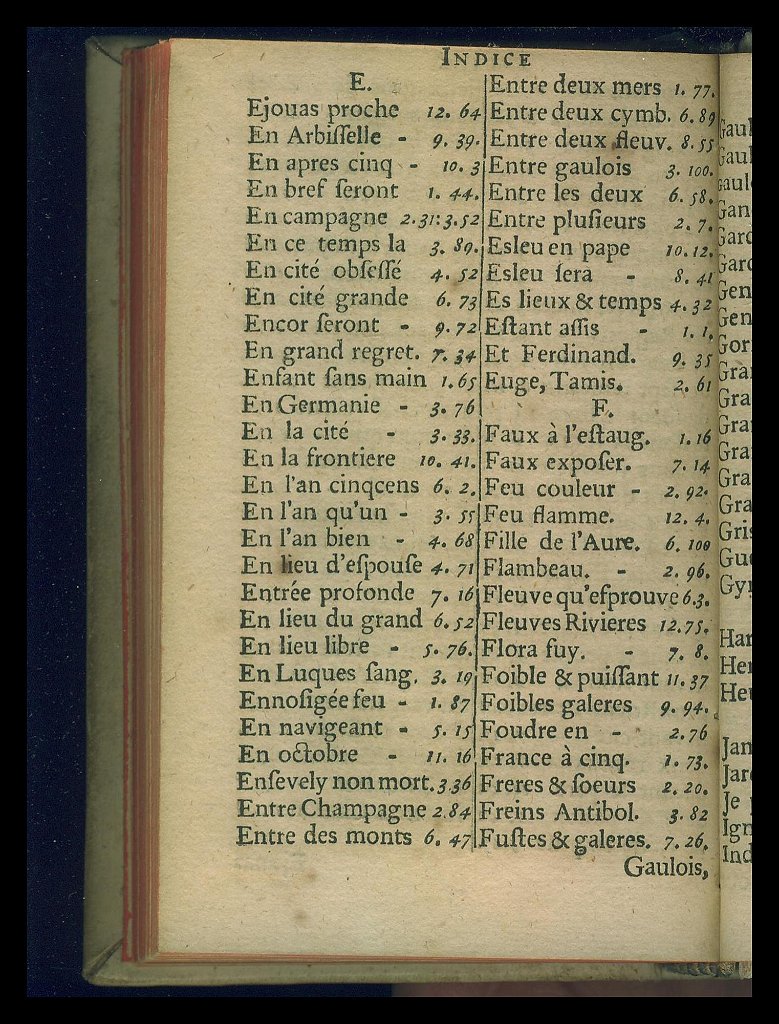 INDICE
E.
Ejouas proche 12. 64
En Arbiſſelle - 9. 39.
En apres cinq - 10. 3
En bref ſeront 1. 44.
En campagne 2.31:3.52
En ce temps la 3. 89.
En cité obſeſſé 4. 52
En cité grande 6. 73
Encor ſeront - 9. 72
En grand regret. 7. 34
Enfant ſans main 1.65
En Germanie - 3. 76
En la cité - 3. 33.
En la frontiere 10. 41.
En l'an cinqcens 6. 2.
En l'an qu'un - 3. 55
En l'an bien - 4. 68
En lieu d'eſpouſe 4. 71
Entrée profonde 7. 16
En lieu du grand 6.52
En lieu libre - 5. 76.
En Luques ſang. 3. 19
Ennoſigée feu - 1. 87
En navigeant - 5. 15
En octobre - 11. 16
Enſevely non mort. 3 36
Entre Champagne 2 84
Entre des monts 6. 47
Entre deux mers 1. 77.
Entre deux cymb. 6. 89
Entre deux fleuv. 8. 55
Entre gaulois 3. 100.
Entre les deux 6. 58.
Entre pluſieurs 2. 7.
Esleu en pape 10. 12.
Esleu ſera - 8. 41
Es lieux & temps 4. 32
Eſtant aſſis - 1. 1.
Et Ferdinand. 9. 35
Euge, Tamis. 2. 61
F.
Faux à l'eſtaug. 1. 16
Faux expoſer. 7. 14
Feu couleur - 2. 92.
Feu flamme. 12. 4.
Fille de l'Aure. 6. 100
Flambeau. - 2. 96.
Fleuve qu'eſprouve 6.3.
Fleuves Rivieres 12.75.
Flora fuy. - 7. 8.
Foible & puiſſant 11. 37
Foibles galeres 9. 94.
Foudre en - 2.76
France à cinq. 1. 73.
Freres & ſoeurs 2. 20.
Freins Antibol. 3. 82
Fuſtes & galeres. 7. 26.
Gaulois,